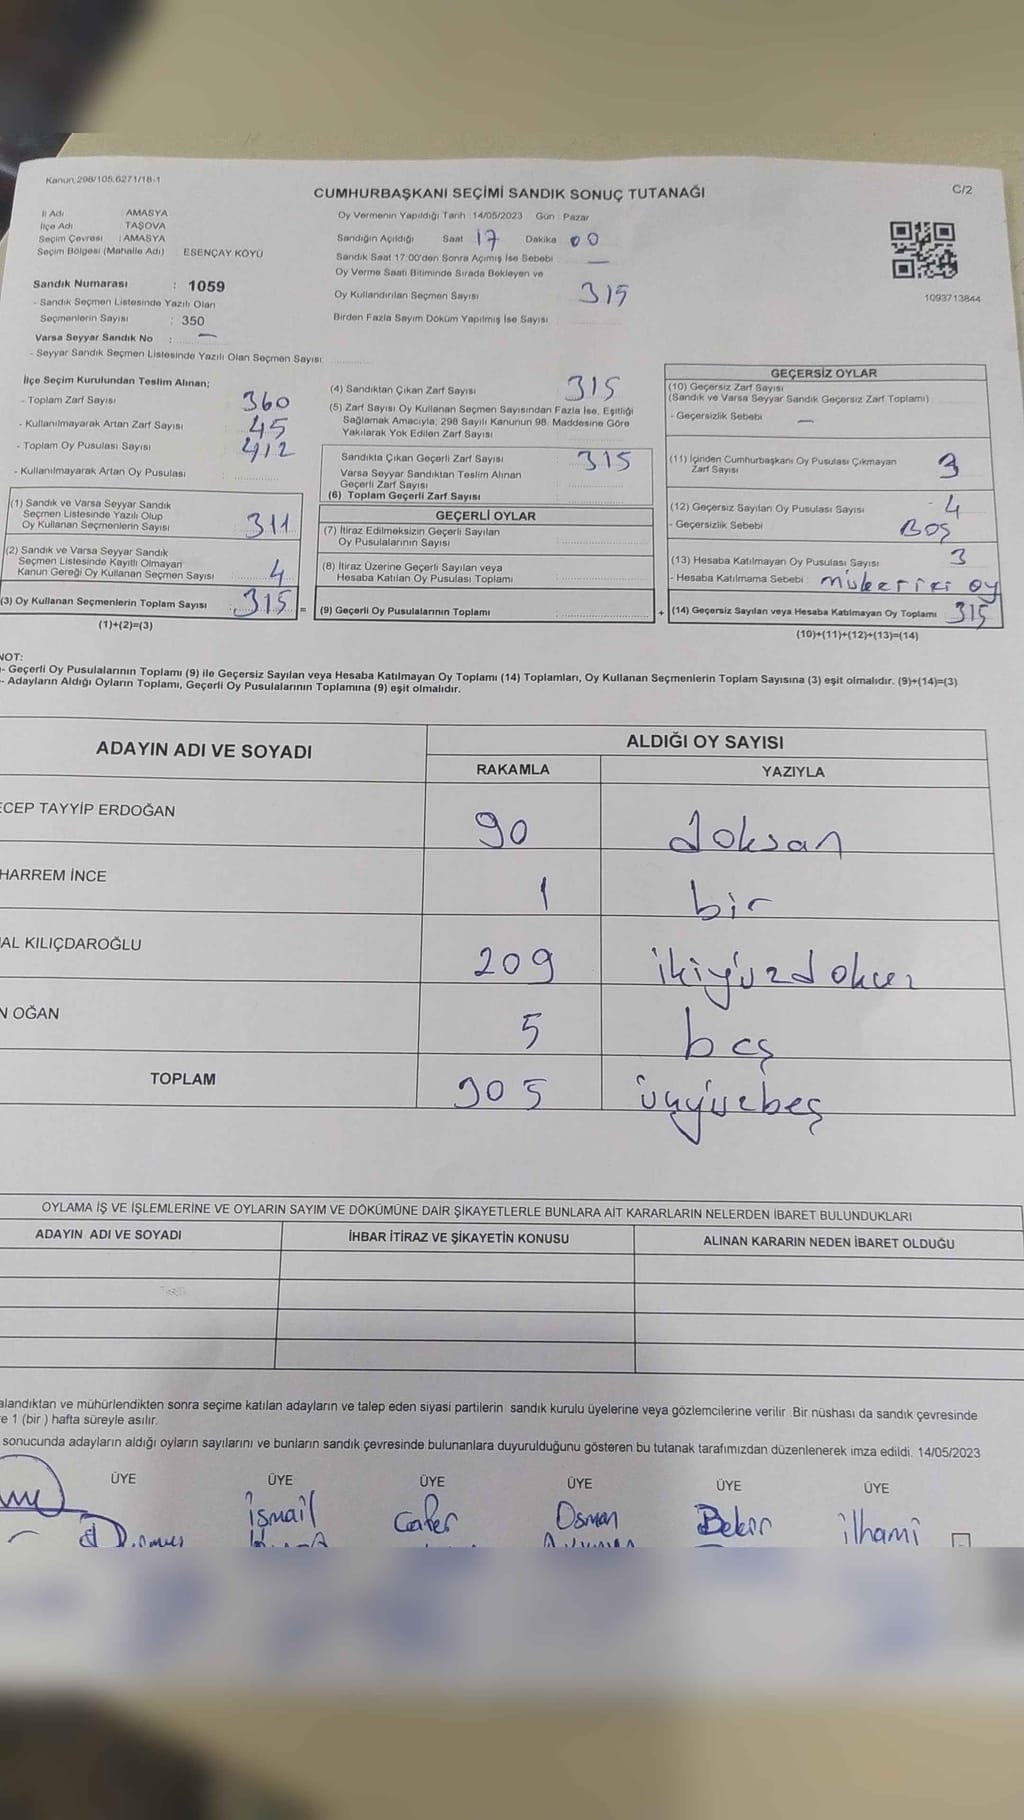 Kanun,298/105,6271/18-1
CUMHURBAŞKANI SEÇİMİ SANDIK SONUÇ TUTANAĞI
C/2
İl Adı AMASYA
İlçe Adı TAŞOVA
Seçim Çevresi : AMASYA
Seçim Bölgesi (Mahalle Adı) : ESENÇAY KÖYÜ
Sandık Numarası : 1059
- Sandık Seçmen Listesinde Yazılı Olan
Seçmenlerin Sayısı : 350
Varsa Seyyar Sandık No : —
- Seyyar Sandık Seçmen Listesinde Yazılı Olan Seçmen Sayısı:
Oy Vermenin Yapıldığı Tarih 14/05/2023 Gün : Pazar
Sandığın Açıldığı Saat 17 Dakika 00
Sandık Saat 17:00'den Sonra Açımış İse Sebebi : —
Oy Verme Saati Bitiminde Sırada Bekleyen ve
Oy Kullandırılan Seçmen Sayısı 315
Birden Fazla Sayım Döküm Yapılmış İse Sayısı
1093713844
İlçe Seçim Kurulundan Teslim Alınan;
- Toplam Zarf Sayısı 360
- Kullanılmayarak Artan Zarf Sayısı 45
- Toplam Oy Pusulası Sayısı 412
- Kullanılmayarak Artan Oy Pusulası :
(1) Sandık ve Varsa Seyyar Sandık
Seçmen Listesinde Yazılı Olup
Oy Kullanan Seçmenlerin Sayısı 311
(2) Sandık ve Varsa Seyyar Sandık
Seçmen Listesinde Kayıtlı Olmayan
Kanun Gereği Oy Kullanan Seçmen Sayısı 4
(3) Oy Kullanan Seçmenlerin Toplam Sayısı 315 =
(1)+(2)=(3)
(4) Sandıktan Çıkan Zarf Sayısı 315
(5) Zarf Sayısı Oy Kullanan Seçmen Sayısından Fazla İse, Eşitliği
Sağlamak Amacıyla; 298 Sayılı Kanunun 98. Maddesine Göre
Yakılarak Yok Edilen Zarf Sayısı
Sandıkta Çıkan Geçerli Zarf Sayısı : 315
Varsa Seyyar Sandıktan Teslim Alınan
Geçerli Zarf Sayısı
(6) Toplam Geçerli Zarf Sayısı
GEÇERLİ OYLAR
(7) İtiraz Edilmeksizin Geçerli Sayılan
Oy Pusulalarının Sayısı
(8) İtiraz Üzerine Geçerli Sayılan veya
Hesaba Katılan Oy Pusulası Toplamı
(9) Geçerli Oy Pusulalarının Toplamı : +
GEÇERSİZ OYLAR
(10) Geçersiz Zarf Sayısı
(Sandık ve Varsa Seyyar Sandık Geçersiz Zarf Toplamı)
- Geçersizlik Sebebi —
(11) İçinden Cumhurbaşkanı Oy Pusulası Çıkmayan
Zarf Sayısı 3
(12) Geçersiz Sayılan Oy Pusulası Sayısı - 4
- Geçersizlik Sebebi BOŞ
(13) Hesaba Katılmayan Oy Pusulası Sayısı 3
- Hesaba Katılmama Sebebi : oy
(14) Geçersiz Sayılan veya Hesaba Katılmayan Oy Toplamı 315
(10)+(11)+(12)+(13)=(14)
NOT:
- Geçerli Oy Pusulalarının Toplamı (9) ile Geçersiz Sayılan veya Hesaba Katılmayan Oy Toplamı (14) Toplamları, Oy Kullanan Seçmenlerin Toplam Sayısına (3) eşit olmalıdır. (9)+(14)=(3)
- Adayların Aldığı Oyların Toplamı, Geçerli Oy Pusulalarının Toplamına (9) eşit olmalıdır.
ADAYIN ADI VE SOYADI
ALDIĞI OY SAYISI
RAKAMLA YAZIYLA
ECEP TAYYİP ERDOĞAN 90 doksan
HARREM İNCE 1 bir
AL KILIÇDAROĞLU 209 ikiyüzdokuz
N OĞAN 5 beş
TOPLAM 305 üçyüzbeş
OYLAMA İŞ VE İŞLEMLERİNE VE OYLARIN SAYIM VE DÖKÜMÜNE DAİR ŞİKAYETLERLE BUNLARA AİT KARARLARIN NELERDEN İBARET BULUNDUKLARI
ADAYIN ADI VE SOYADI İHBAR İTİRAZ VE ŞİKAYETİN KONUSU ALINAN KARARIN NEDEN İBARET OLDUĞU
alandıktan ve mühürlendikten sonra seçime katılan adayların ve talep eden siyasi partilerin sandık kurulu üyelerine veya gözlemcilerine verilir. Bir nüshası da sandık çevresinde
e 1 (bir ) hafta süreyle asılır.
sonucunda adayların aldığı oyların sayılarını ve bunların sandık çevresinde bulunanlara duyurulduğunu gösteren bu tutanak tarafımızdan düzenlenerek imza edildi. 14/05/2023
ÜYE ÜYE ÜYE ÜYE ÜYE ÜYE
ismail Cafer Osman Bekir ilhami